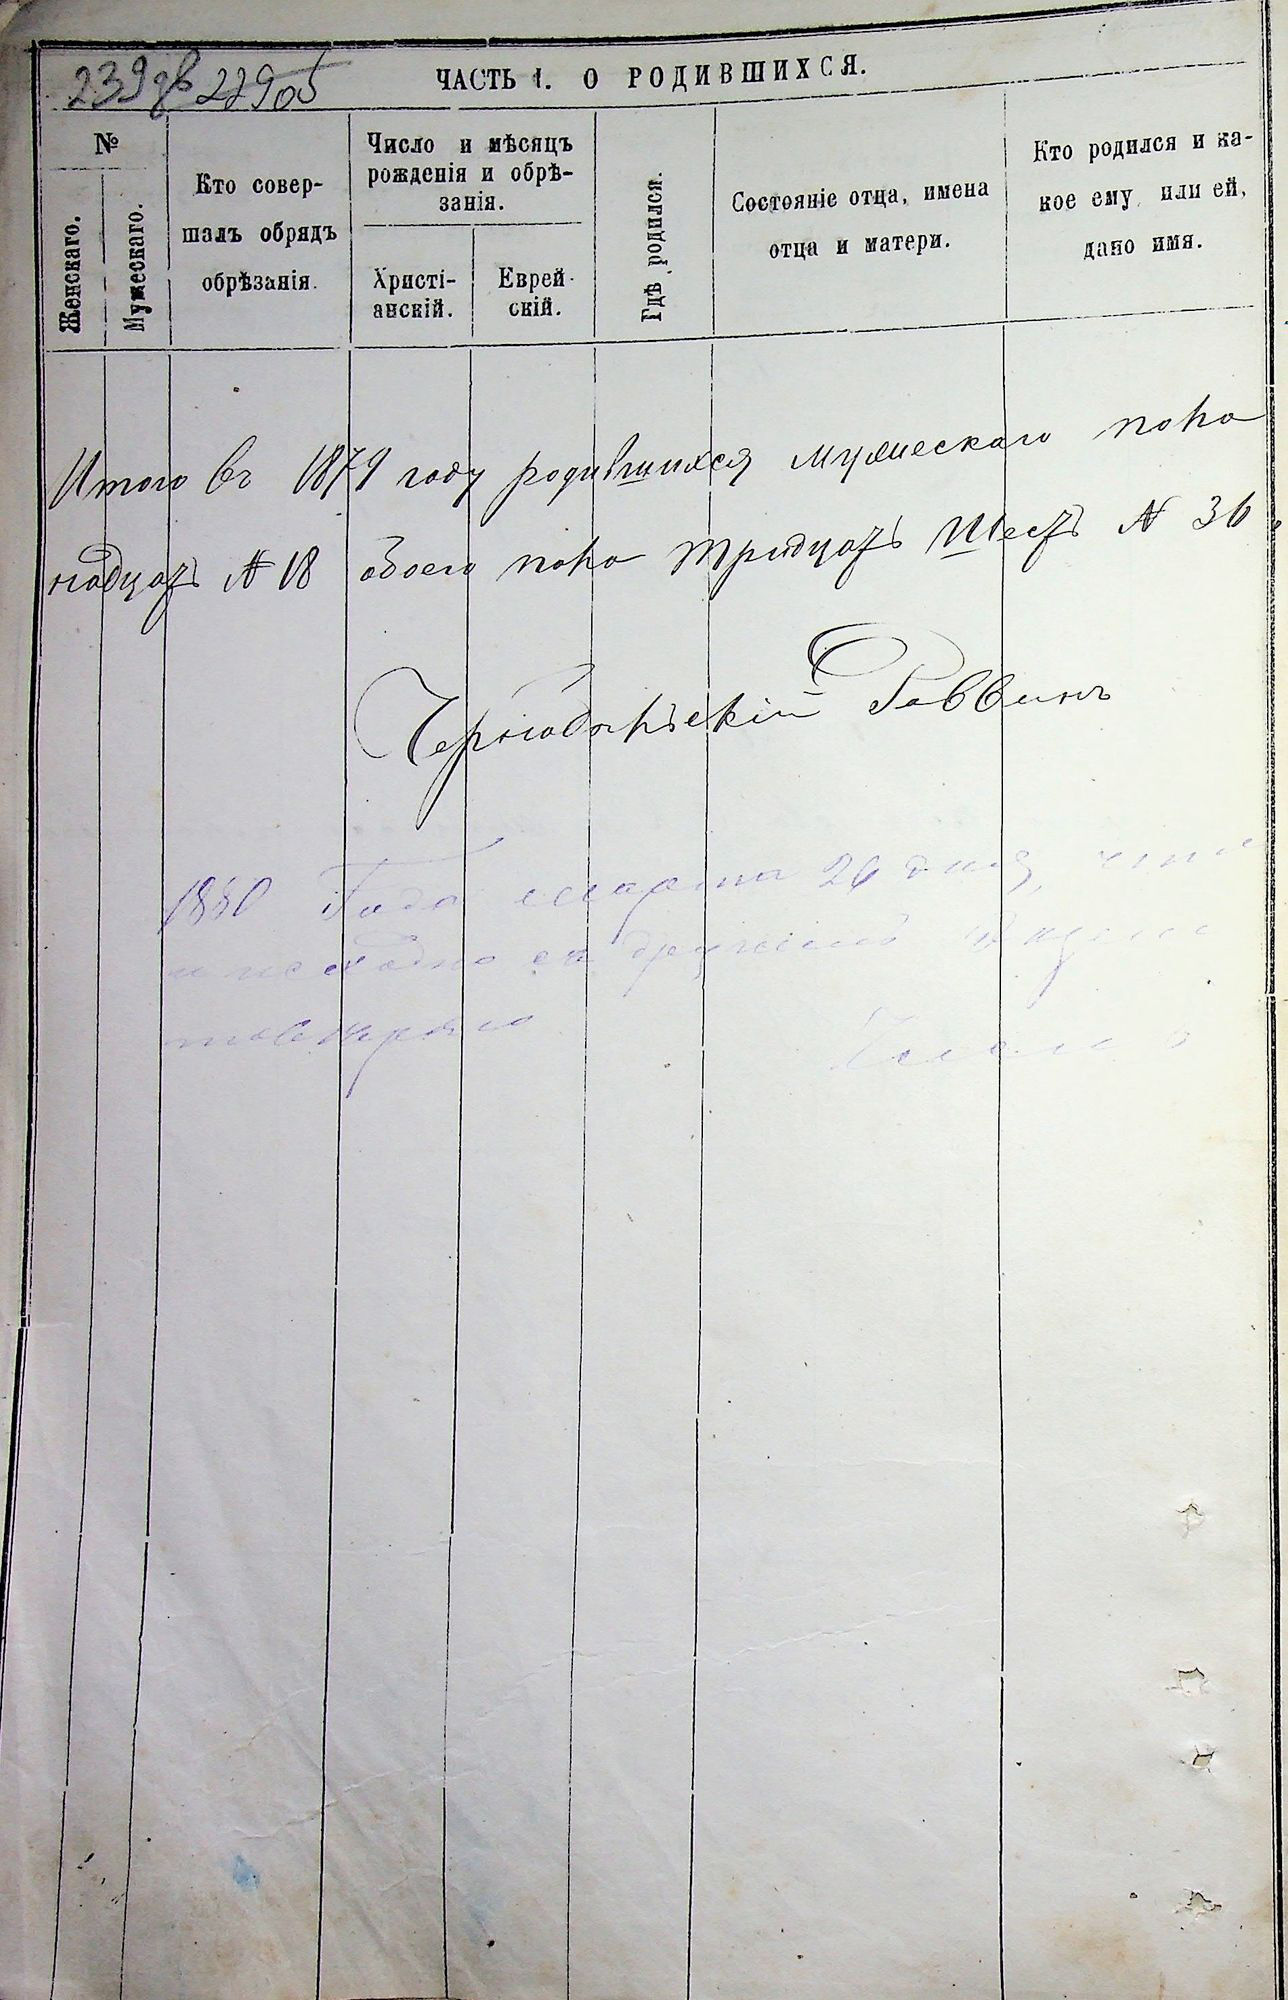 239 об 229 об
ЧАСТЬ 1. О РОДИВШИХСЯ.
№
Женскаго.
Мужескаго.
Кто совер-
шалъ обрядъ
обрѣзанія.
Число и мѣсяцъ
рожденія и обрѣ-
занія.
Христі-
анскій.
Еврей-
скій.
Гдѣ родился.
Состояніе отца, имена
отца и матери.
Кто родился и ка-
кое ему или ей,
дано имя.
Итого въ 1879 году родившихся мужескаго пола
надцать № 18 обоего пола тридцать шесть № 36
Чернобыльскій Раввинъ
1880 Года марта 26 дня,